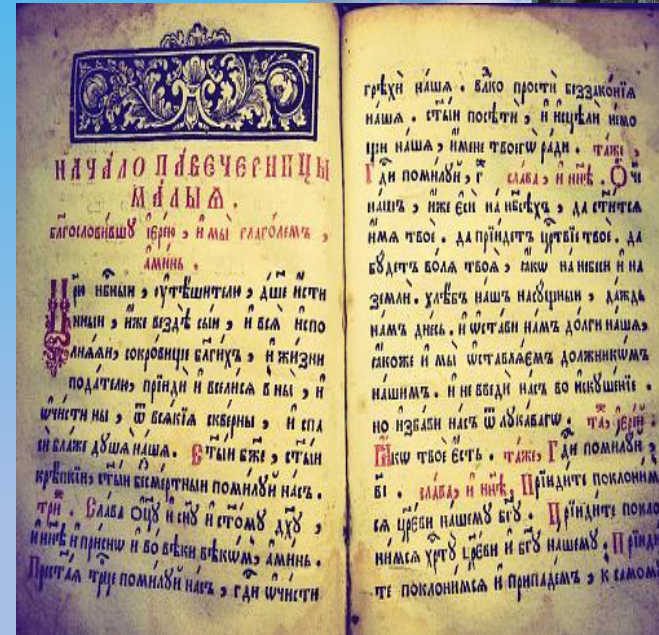 НАЧАЛО ПАВЕЧЕРНИЦЫ
МАЛЫѦ.
бл҃гословившꙋ іерею, и мы глаголемъ,
аминь.
Цр҃ю нб҃ныи, ᲂутѣшителю, дш҃е исти
нныи, иже вездѣ сыи, и всѧ испо
лнѧѧи, сокровище бл҃гихъ, и жизни
подателю, прїиди и вселисѧ в ны, и
ѡчисти ны, ѿ всѧкїѧ скверны, и спа
си бл҃же дꙋшѧ нашѧ. Ст҃ыи бж҃е, ст҃ыи
крѣпкїи, ст҃ыи бесмертныи помилꙋй насъ.
три. Слава ѻц҃ꙋ и сн҃ꙋ и ст҃омꙋ дх҃ꙋ,
и нн҃ѣ и присно и во вѣки вѣкѡмъ, аминь.
Прест҃аѧ трц҃е помилꙋй насъ, гд҃и ѡчисти
грѣхи нашѧ. вл҃ко прости беззаконїѧ
нашѧ. ст҃ыи посѣти, и исцѣли немо
щи нашѧ, имене твоегѡ ради. таже,
Гд҃и помилꙋй, г҃ слава, и нн҃ѣ. Ѻч҃е
нашъ, иже еси на нб҃сѣхъ, да ст҃итсѧ
имѧ твое. да прїидетъ цр҃твїе твое. да
бꙋдетъ волѧ твоѧ, ꙗкѡ на небеси и на
земли. хлѣбъ нашъ насꙋщныи, даждь
намъ днесь. и ѡстави намъ долги нашѧ,
ꙗкоже и мы ѡставлѧемъ должникѡмъ
нашимъ. и не введи насъ во искꙋшенїе.
но избави насъ ѿ лꙋкавагѡ. та, іерѣй.
Ꙗкѡ твое есть. таже, Гд҃и помилꙋй,
в҃і. слава, и нн҃ѣ, Прїидите поклоним
сѧ цр҃еви нашемꙋ бг҃ꙋ. Прїидите покло
нимсѧ хрт҃ꙋ цр҃еви и бг҃ꙋ нашемꙋ. Прїиди
те поклонимсѧ и припадемъ, к самомꙋ